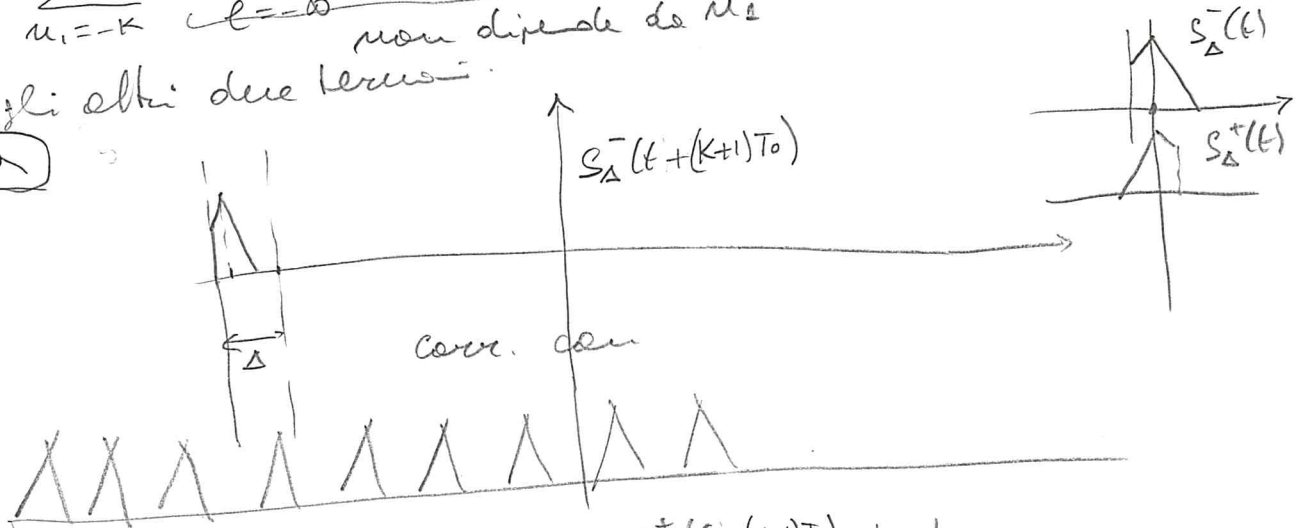 n₁=-K ℓ=-∞
non dipende da n₁
gli altri due termini.
S_Δ^-(t)
S_Δ^-(t+(K+1)T₀)
S_Δ^+(t)
Δ
corr. con